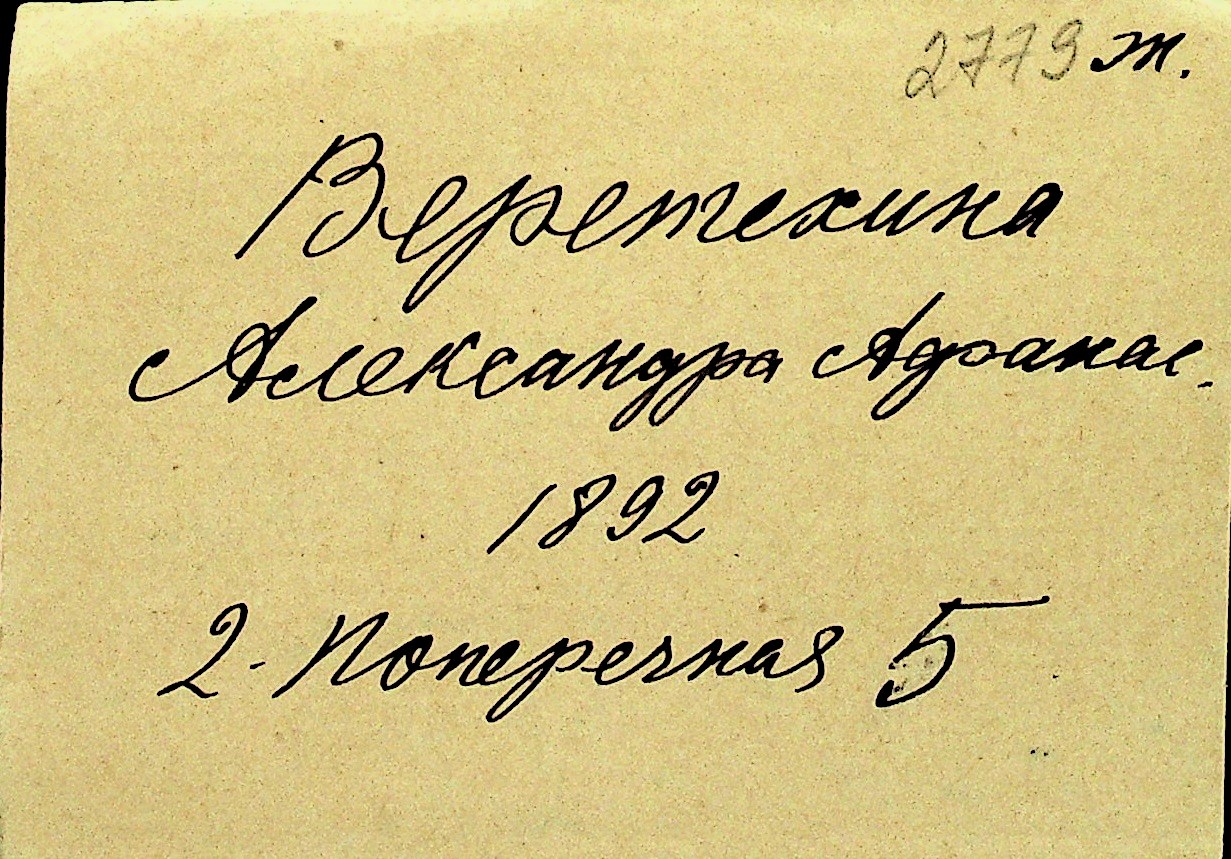 2779 т.
Веретехина
Александра Афанас.
1892
2. Поперечная 5